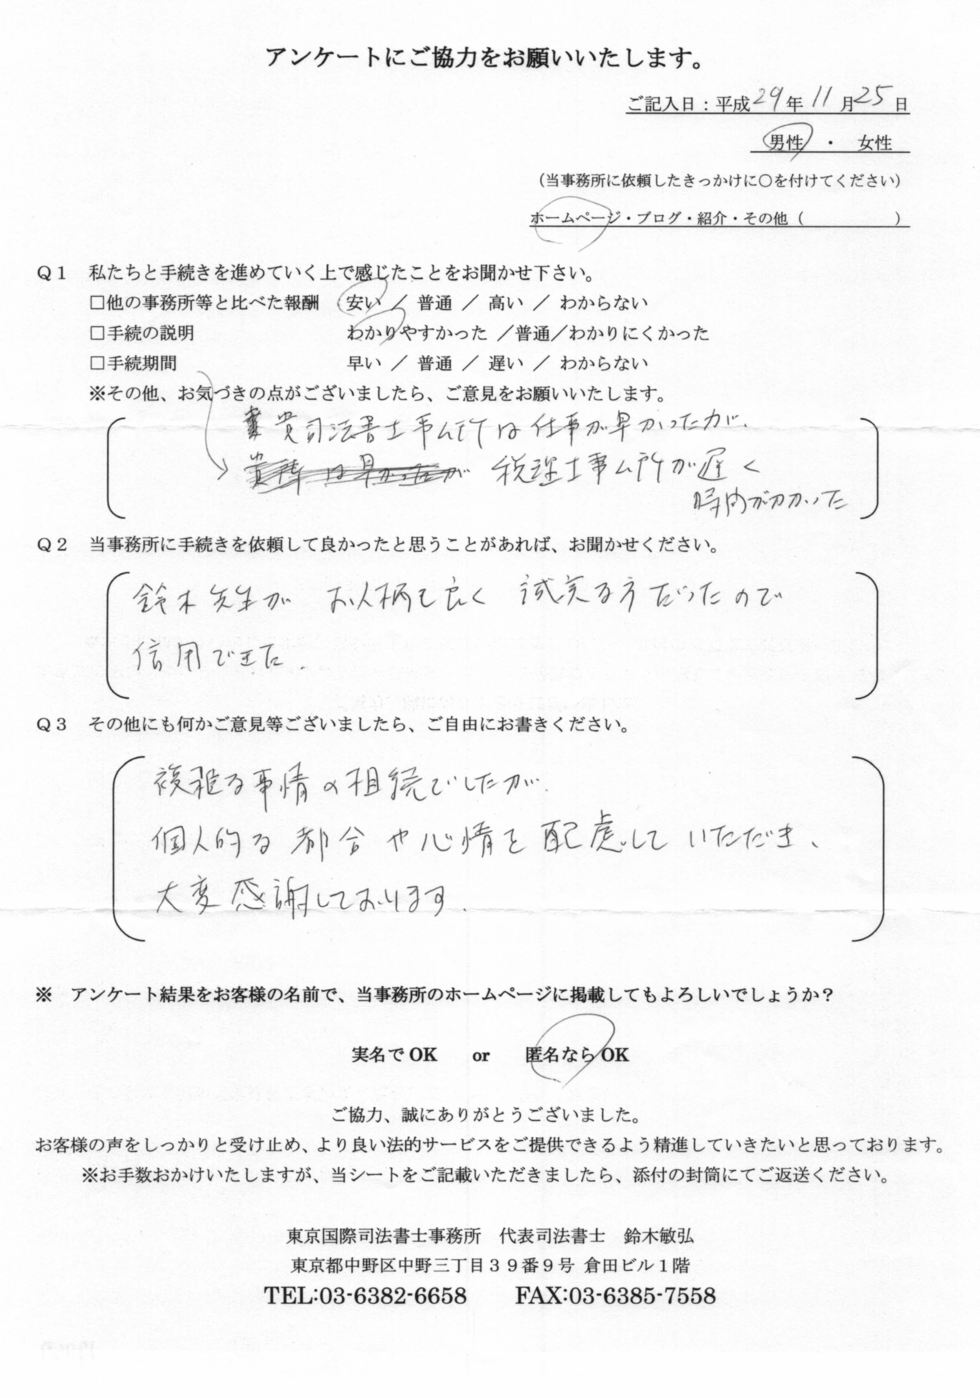 アンケートにご協力をお願いいたします。
ご記入日：平成29年11月25日
男性 ・ 女性
（当事務所に依頼したきっかけに○を付けてください）
ホームページ・ブログ・紹介・その他（　　　　　）
Q1　私たちと手続きを進めていく上で感じたことをお聞かせ下さい。
□他の事務所等と比べた報酬　安い ／ 普通 ／ 高い ／ わからない
□手続の説明　わかりやすかった ／普通／わかりにくかった
□手続期間　早い ／ 普通 ／ 遅い ／ わからない
※その他、お気づきの点がございましたら、ご意見をお願いいたします。
貴司法書士事ム所は仕事が早かったが、
税理士事ム所が遅く
時間がかかった
Q2　当事務所に手続きを依頼して良かったと思うことがあれば、お聞かせください。
鈴木先生が お人柄も良く 誠実な方だったので
信用できた.
Q3　その他にも何かご意見等ございましたら、ご自由にお書きください。
複雑な事情の相続でしたが、
個人的な都合や心情を配慮していただき、
大変感謝しております.
※　アンケート結果をお客様の名前で、当事務所のホームページに掲載してもよろしいでしょうか？
実名でOK　or　匿名ならOK
ご協力、誠にありがとうございました。
お客様の声をしっかりと受け止め、より良い法的サービスをご提供できるよう精進していきたいと思っております。
※お手数おかけいたしますが、当シートをご記載いただきましたら、添付の封筒にてご返送ください。
東京国際司法書士事務所　代表司法書士　鈴木敏弘
東京都中野区中野三丁目３９番９号 倉田ビル１階
TEL:03-6382-6658　FAX:03-6385-7558